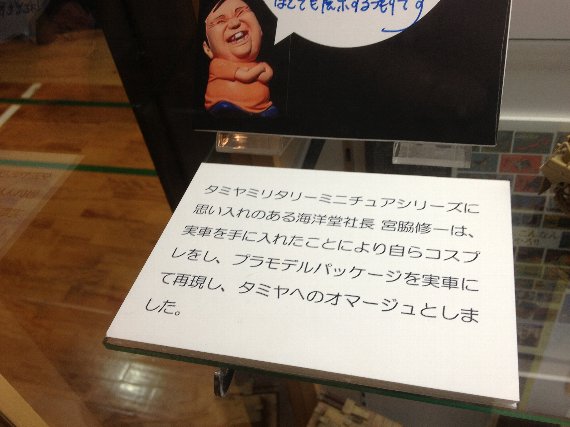 はとても展示する予定です
タミヤミリタリーミニチュアシリーズに
思い入れのある海洋堂社長 宮脇修一は、
実車を手に入れたことにより自らコスプ
レをし、プラモデルパッケージを実車に
て再現し、タミヤへのオマージュとしま
した。